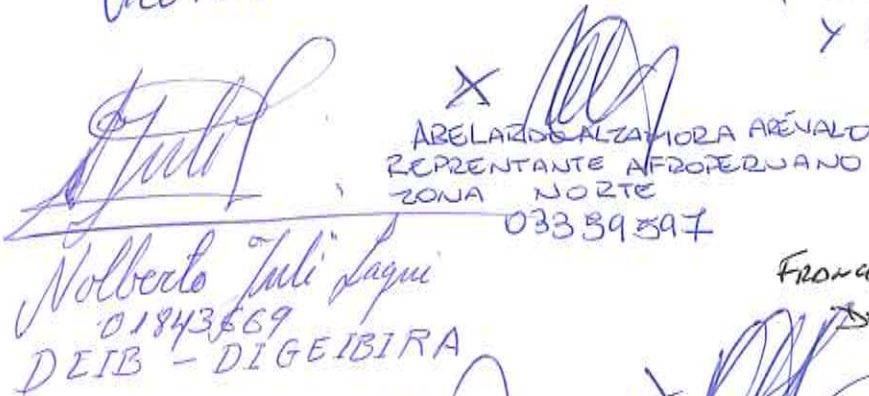 X
ABELARDO ALZAMORA ARÉVALO
REPRENTANTE AFROPERUANO
ZONA NORTE
03359597
Nolberto Juli Laqui
01843669
DEIB - DIGEIBIRA
Y